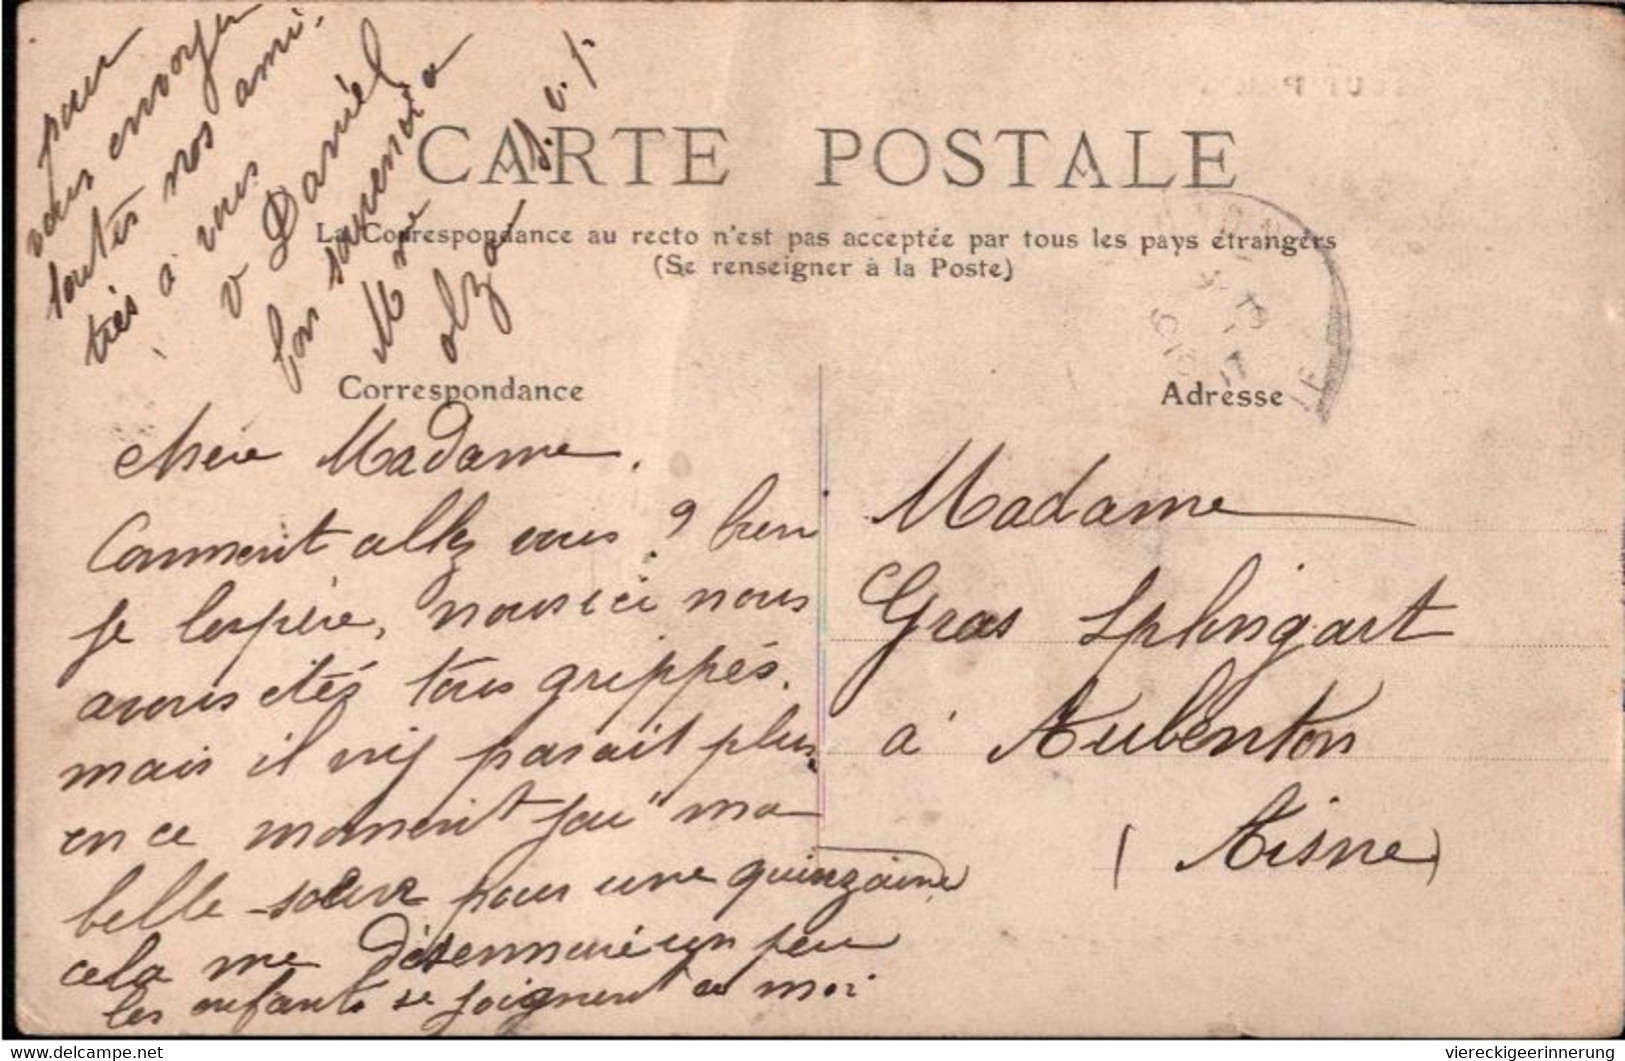 CARTE POSTALE
La Correspondance au recto n'est pas acceptée par tous les pays étrangers
(Se renseigner à la Poste)
Correspondance
Adresse
chère Madame.
Comment allez vous ? bien
je l'espère, nous ici nous
avons étés tous grippés.
mais il n'y parait plus.
en ce moment j'ai ma
belle-soeur pour une quinzaine
cela me désennuie un peu
les enfants se joignent a moi
pour
vous envoyer
toutes nos ami-
tiés à vous
Daniel
son
Mre
s. v. p.
Madame
Gras Splingart
à Aubenton
(Aisne)
viereckigeerinnerung